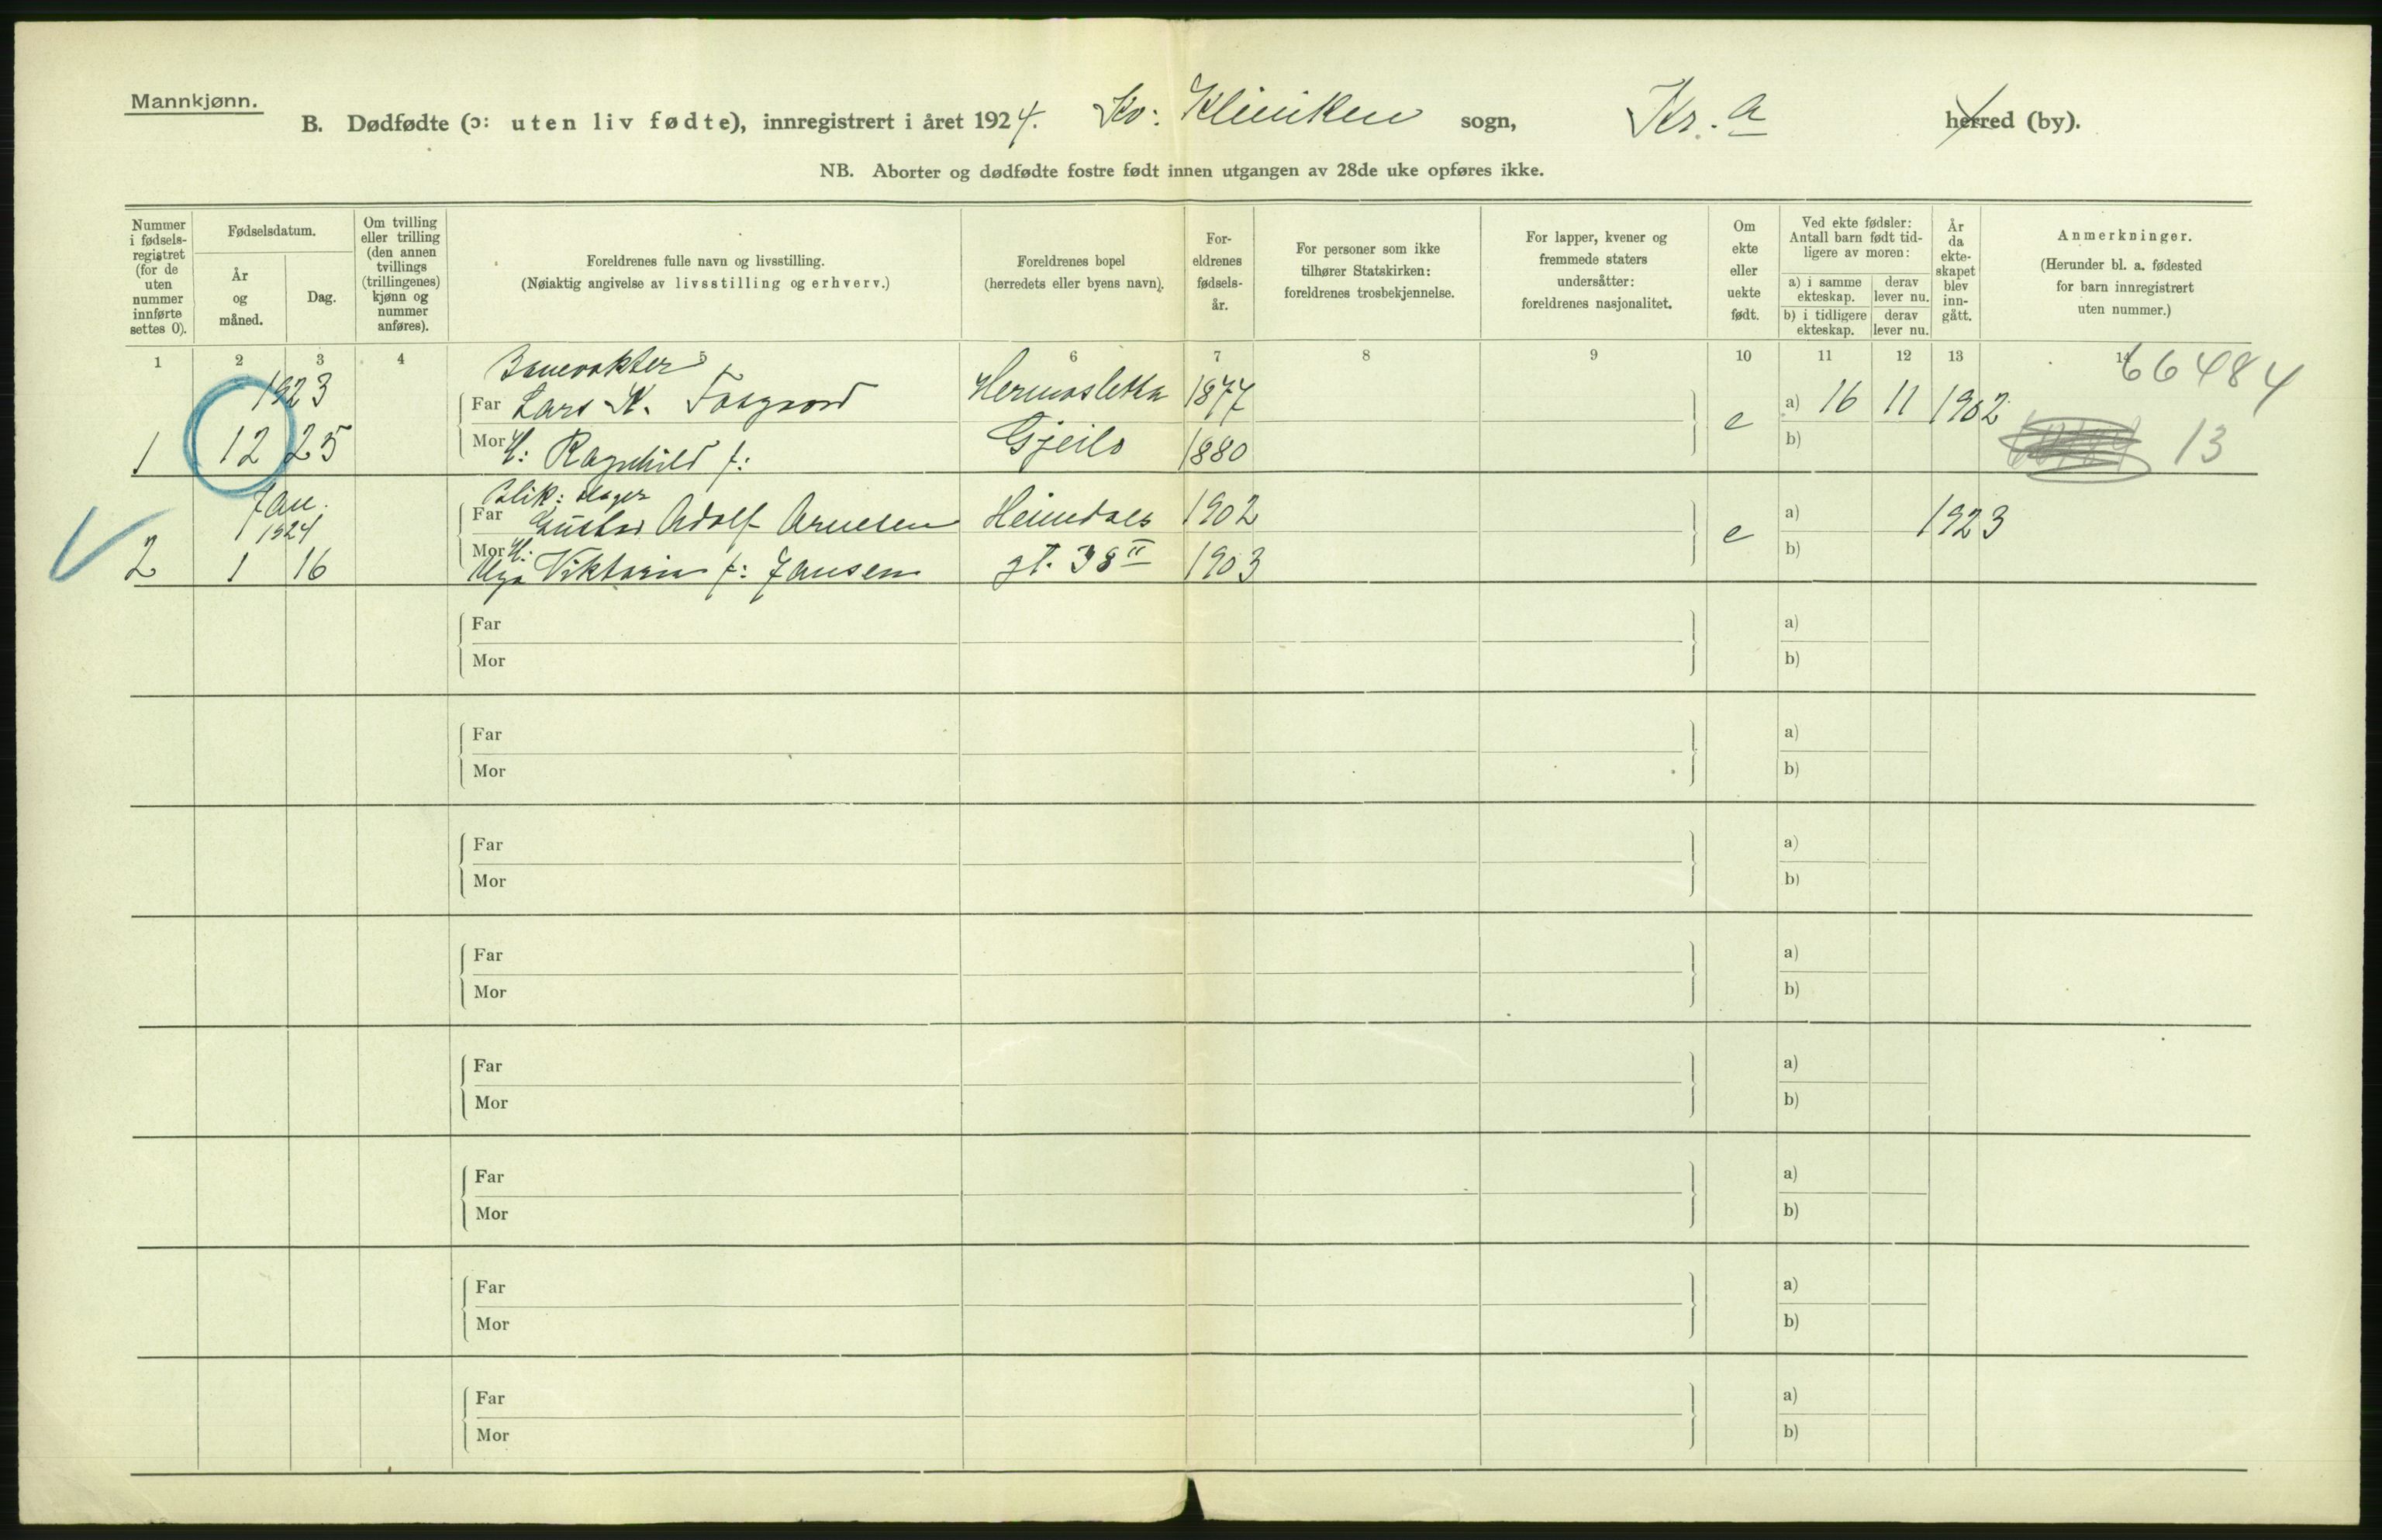 Mannkjønn.
B. Dødfødte (ɔ: uten liv fødte), innregistrert i året 1924. Kv: Kliniken sogn, Kr.a herred (by).
NB. Aborter og dødfødte fostre født innen utgangen av 28de uke opføres ikke.
Nummer i fødselsregistret (for de uten nummer innførte settes 0).
Fødselsdatum.
År og måned.
Dag.
Om tvilling eller trilling (den annen tvillings (trillingenes) kjønn og nummer anføres).
Foreldrenes fulle navn og livsstilling.
(Nøiaktig angivelse av livsstilling og erhverv.)
Foreldrenes bopel
(herredets eller byens navn).
Foreldrenes fødselsår.
For personer som ikke tilhører Statskirken: foreldrenes trosbekjennelse.
For lapper, kvener og fremmede staters undersåtter: foreldrenes nasjonalitet.
Om ekte eller uekte født.
Ved ekte fødsler: Antall barn født tidligere av moren:
a) i samme ekteskap. derav lever nu.
b) i tidligere ekteskap. derav lever nu.
År da ekteskapet blev inngått.
Anmerkninger.
(Herunder bl. a. fødested for barn innregistrert uten nummer.)
1 2 3 4 5 6 7 8 9 10 11 12 13 14
1923 Banevakter 66484
Far Lars K. 1877 a) 16 11 1902
1 12 25 Mor H: Ragnhild f: Gjeilo 1880 e b) 13
Jan. 1924
Far Gustav Adolf Arnesen Heimdals 1902 a) 1923
2 1 16 Mor H: Olga Viktoria f: Jansen gt. 38 II 1903 e b)
Far a)
Mor b)
Far a)
Mor b)
Far a)
Mor b)
Far a)
Mor b)
Far a)
Mor b)
Far a)
Mor b)
Far a)
Mor b)
Far a)
Mor b)